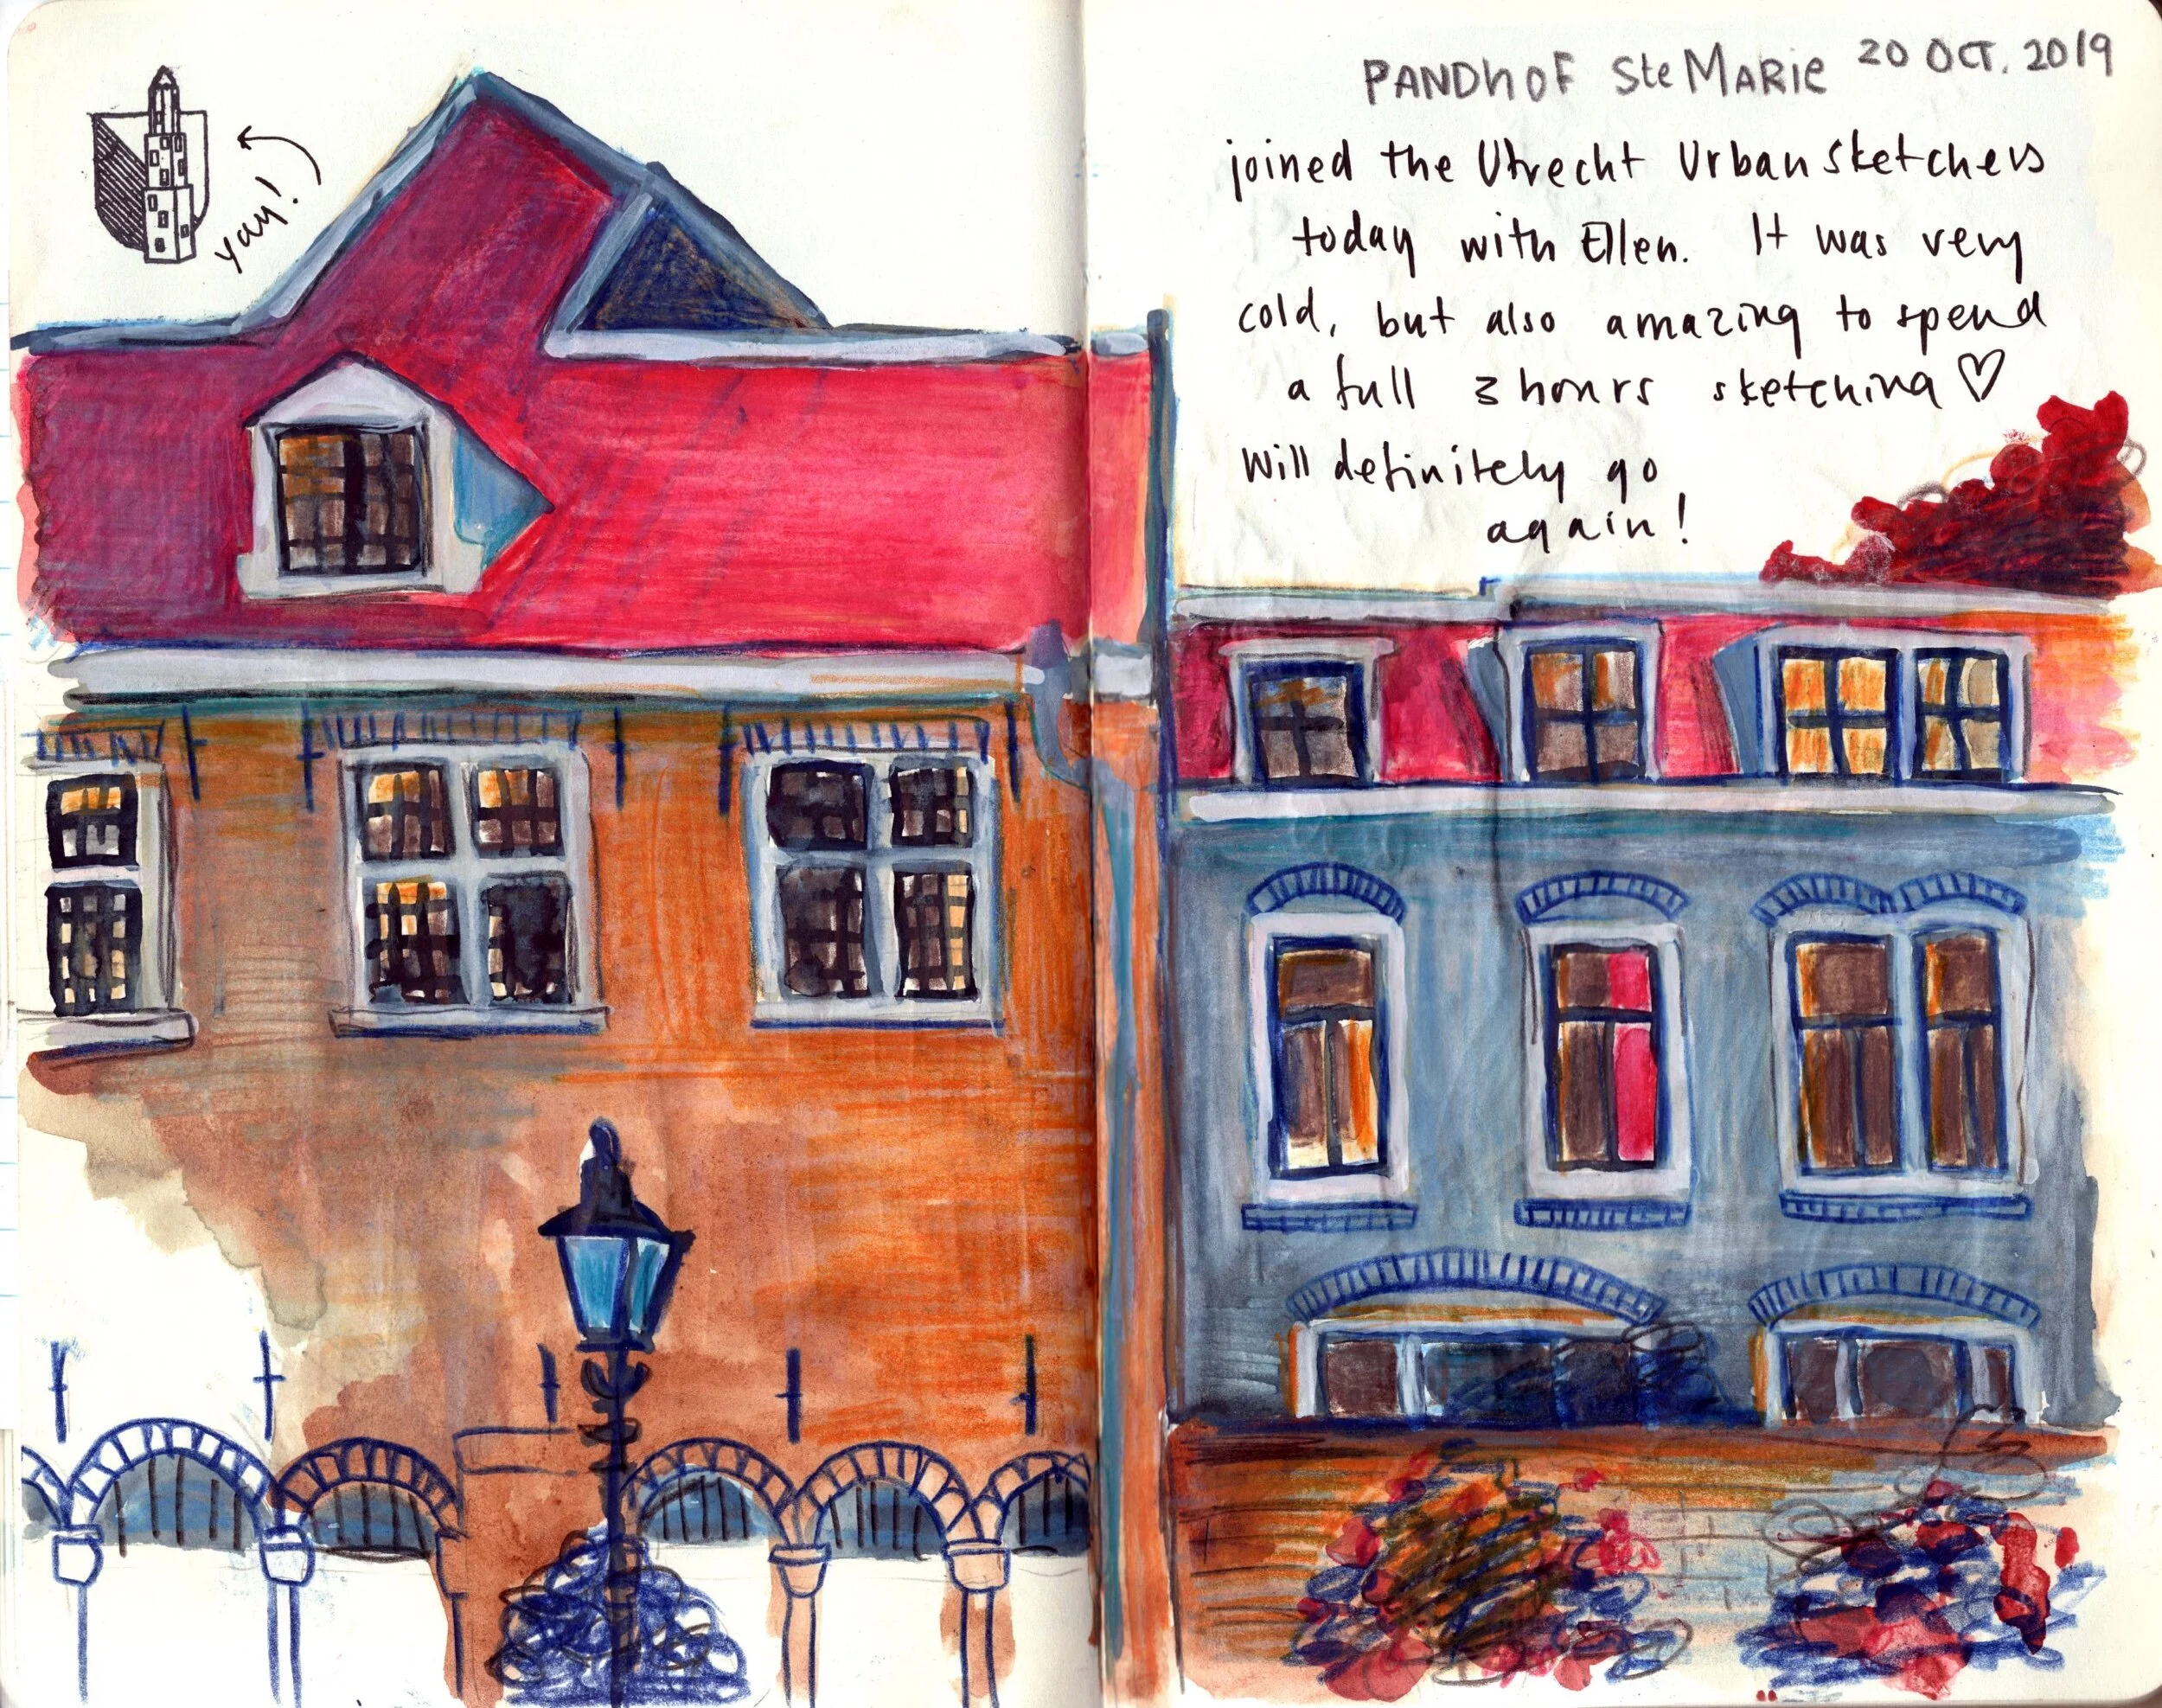 yay!
PANDhOF Ste MARIE 20 OCT. 2019
joined the Utrecht Urban Sketchers
today with Ellen. It was very
cold, but also amazing to spend
a full 3 hours sketching ♡
Will definitely go
again!